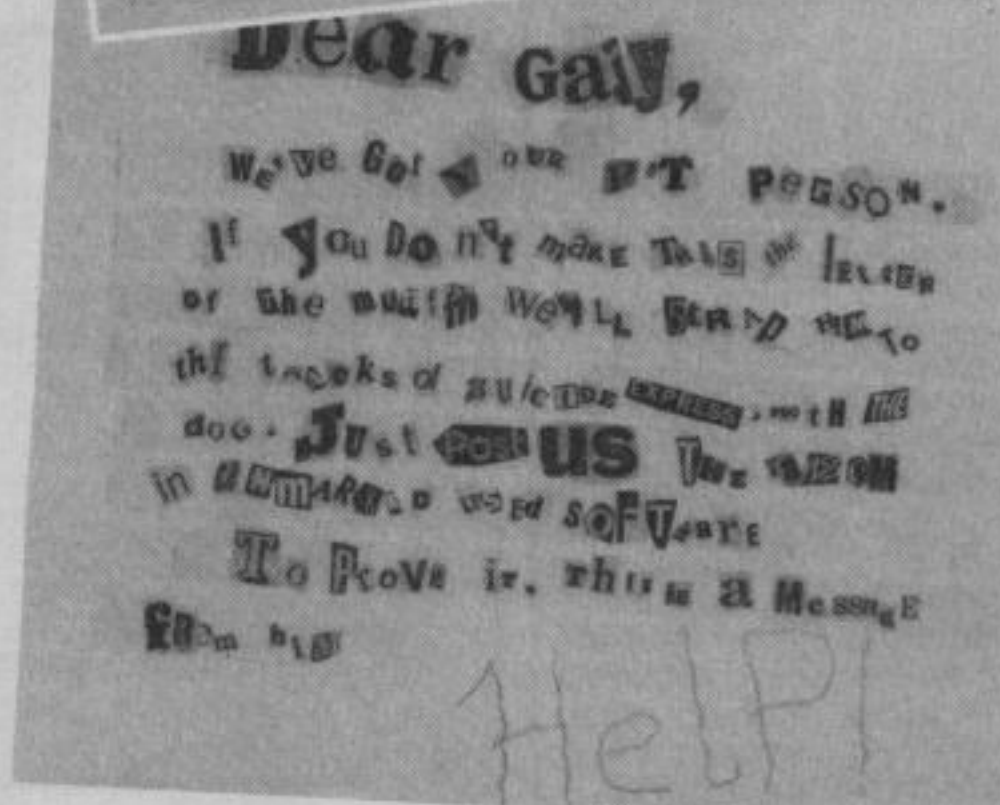 Dear Gary,
We've Got Your PIT PERSON.
If You Do n't make THIS the letter
of the month We'll SEND him To
the tracks of suicide EXPRESS with THE
dog. Just POST US The RANSOM
in UNMARKED used SOFTWARE
To Prove it. This is a MessagE
from him
HelP!